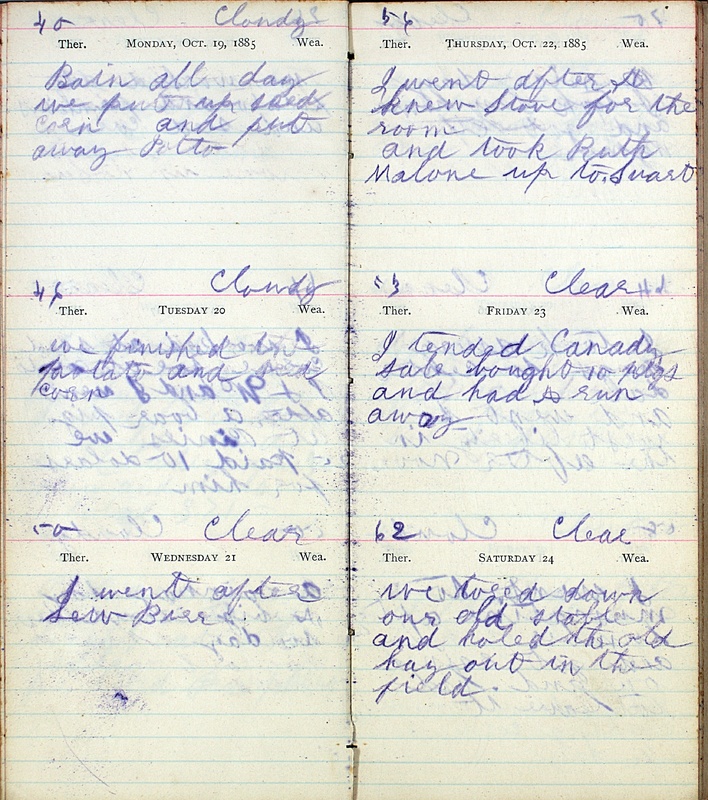 40 Cloudy
Ther. MONDAY, OCT. 19, 1885 Wea.
Rain all day
we put up seed
corn and put
away Potto
Cloudy
Ther. TUESDAY 20 Wea.
we finished
potato and seed
corn
50 Clear
Ther. WEDNESDAY 21 Wea.
I went after
Lew Bier
56
Ther. THURSDAY, OCT. 22, 1885 Wea.
I went after a
knew stove for the
room
and took Ruth
Malone up to
53 Clear
Ther. FRIDAY 23 Wea.
I tended Canady
sale bought 10 pigs
and had a run
away
62 Clear
Ther. SATURDAY 24 Wea.
we tored down
our old stable
and holed the old
hay out in the
field